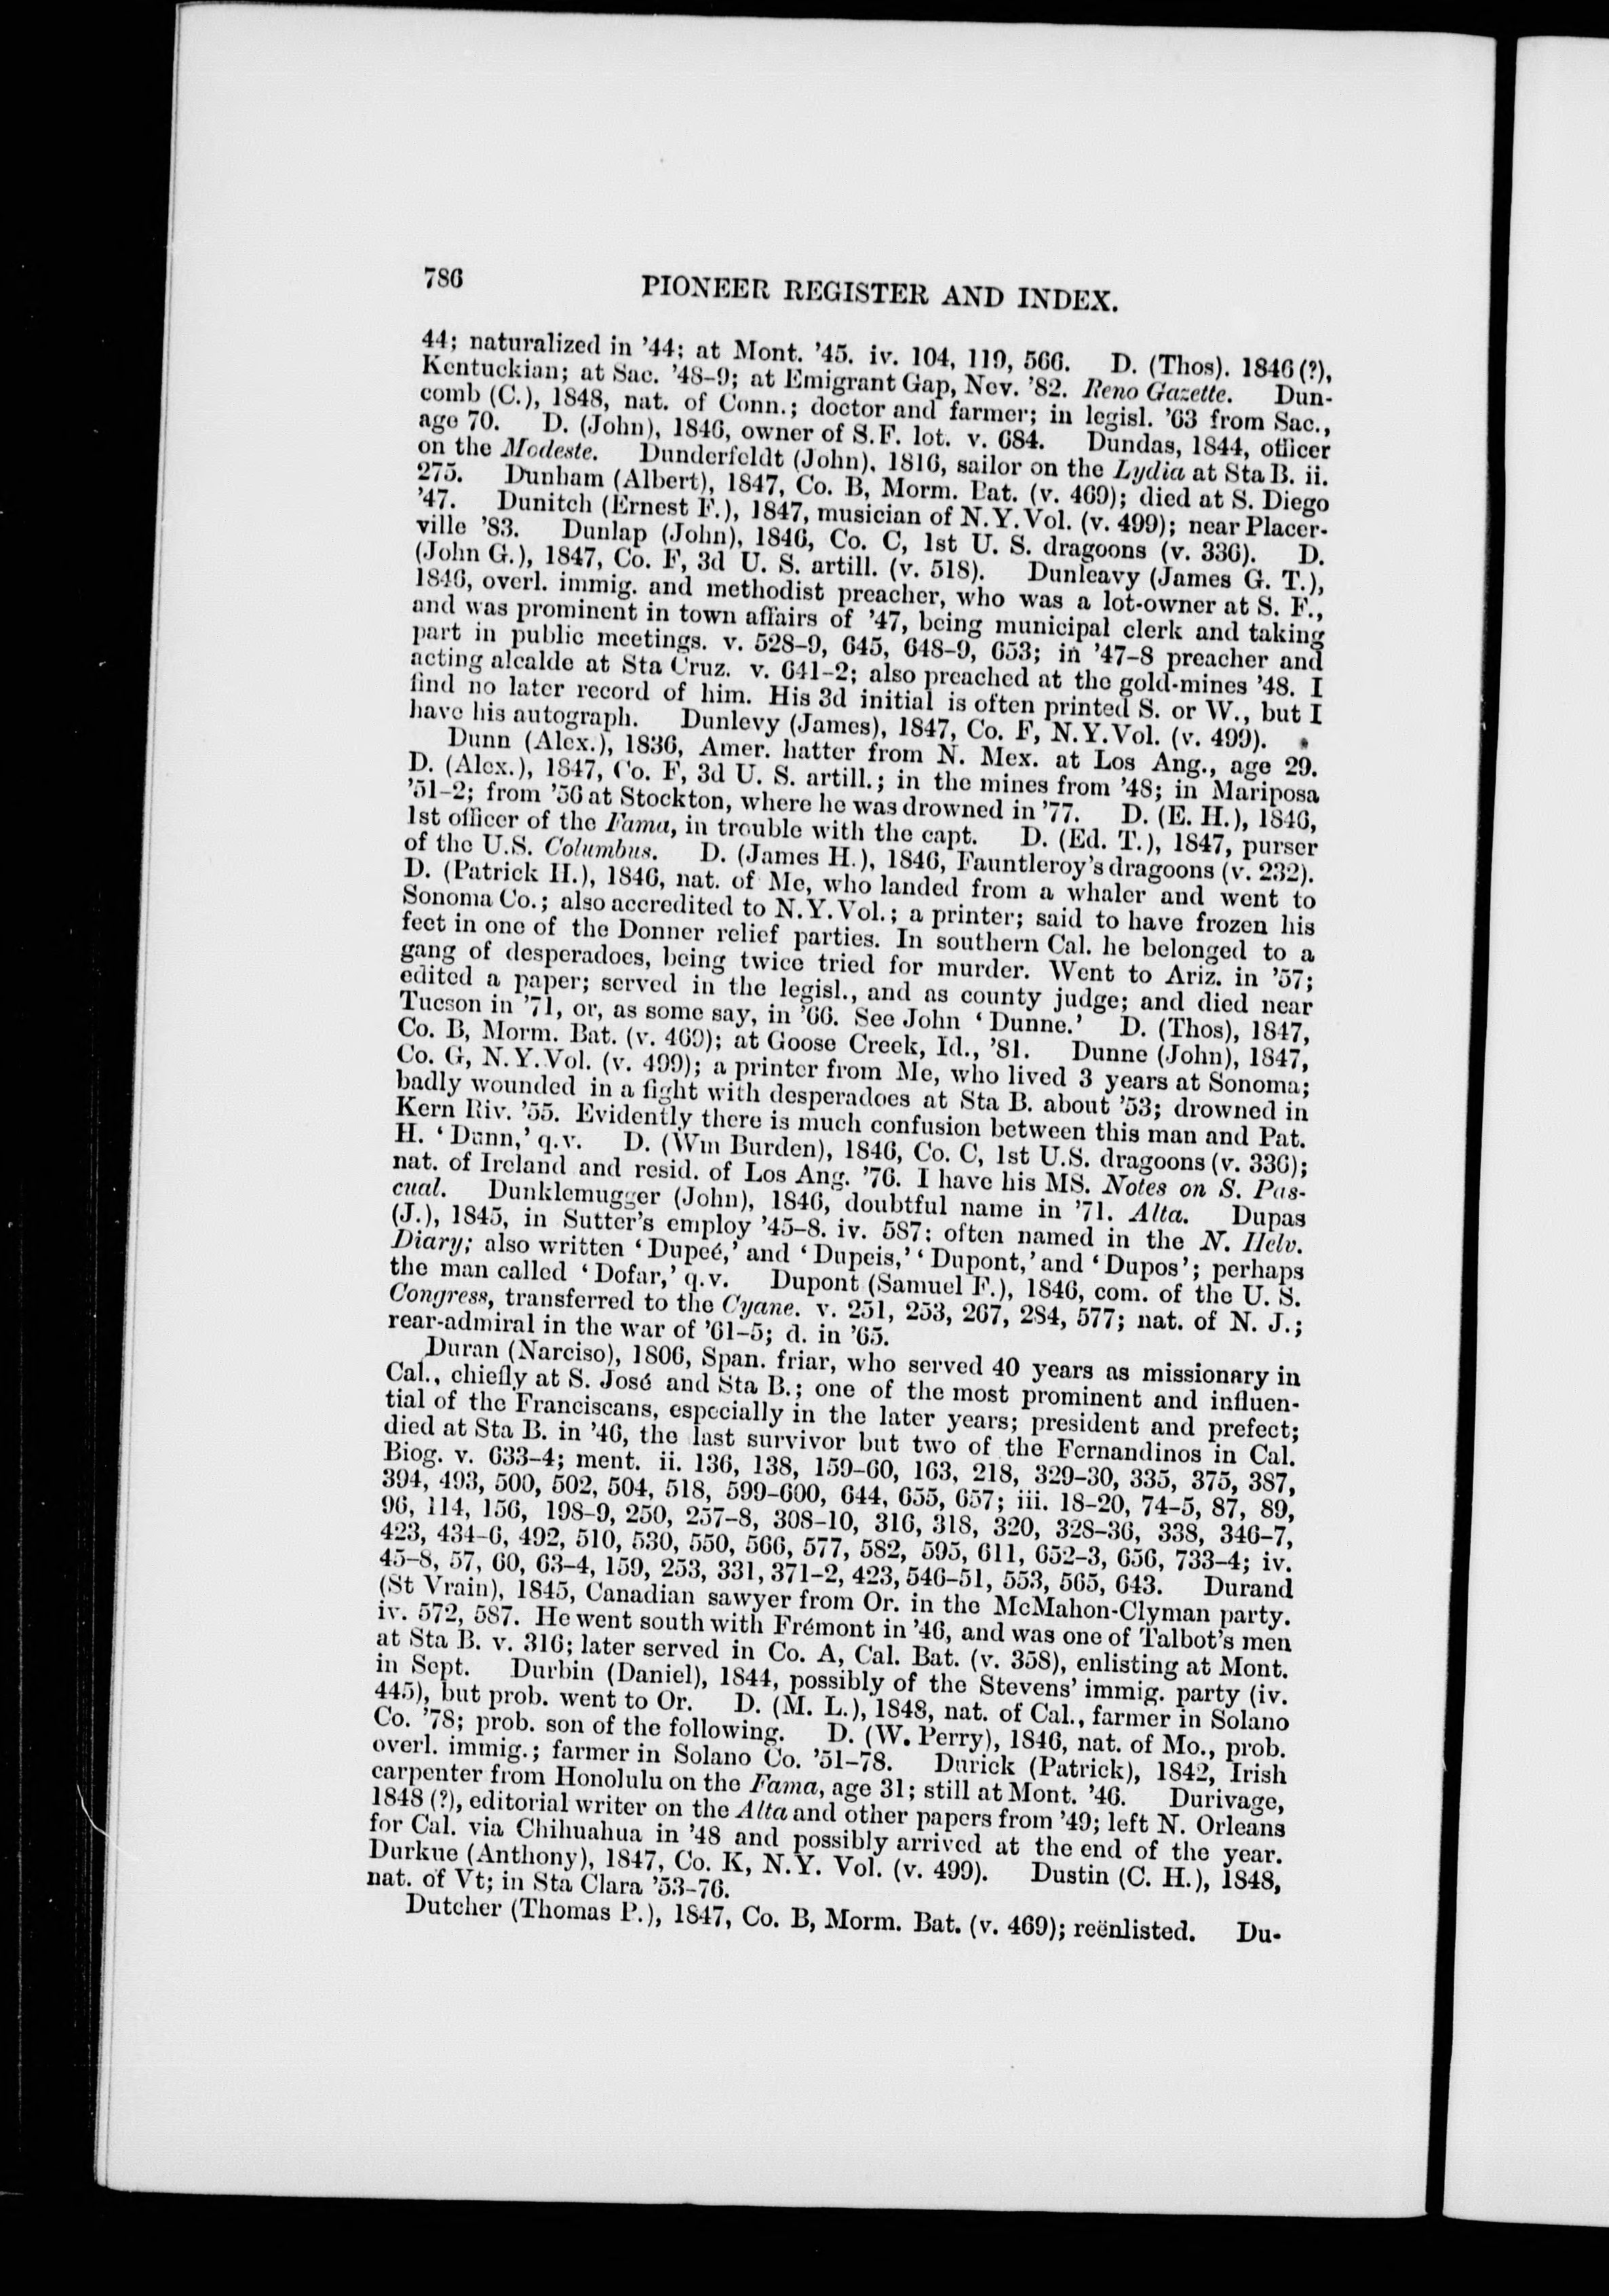 786
PIONEER REGISTER AND INDEX.
44; naturalized in '44; at Mont. '45. iv. 104, 119, 566. D. (Thos). 1846 (?),
Kentuckian; at Sac. '48-9; at Emigrant Gap, Nov. '82. Reno Gazette. Dun-
comb (C.), 1848, nat. of Conn.; doctor and farmer; in legisl. '63 from Sac.,
age 70. D. (John), 1846, owner of S.F. lot. v. 684. Dundas, 1844, officer
on the Modeste. Dunderfeldt (John), 1816, sailor on the Lydia at Sta B. ii.
275. Dunham (Albert), 1847, Co. B, Morm. Bat. (v. 469); died at S. Diego
'47. Dunitch (Ernest F.), 1847, musician of N.Y. Vol. (v. 499); near Placer-
ville '83. Dunlap (John), 1846, Co. C, 1st U. S. dragoons (v. 336). D.
(John G.), 1847, Co. F, 3d U. S. artill. (v. 518). Dunleavy (James G. T.),
1846, overl. immig. and methodist preacher, who was a lot-owner at S. F.,
and was prominent in town affairs of '47, being municipal clerk and taking
part in public meetings. v. 528-9, 645, 648-9, 653; in '47-8 preacher and
acting alcalde at Sta Cruz. v. 641-2; also preached at the gold-mines '48. I
find no later record of him. His 3d initial is often printed S. or W., but I
have his autograph. Dunlevy (James), 1847, Co. F, N.Y. Vol. (v. 499).
Dunn (Alex.), 1836, Amer. hatter from N. Mex. at Los Ang., age 29.
D. (Alex.), 1847, Co. F, 3d U. S. artill.; in the mines from '48; in Mariposa
'51-2; from '56 at Stockton, where he was drowned in '77. D. (E. H.), 1846,
1st officer of the Fama, in trouble with the capt. D. (Ed. T.), 1847, purser
of the U.S. Columbus. D. (James H.), 1846, Fauntleroy's dragoons (v. 232).
D. (Patrick H.), 1846, nat. of Me, who landed from a whaler and went to
Sonoma Co.; also accredited to N.Y. Vol.; a printer; said to have frozen his
feet in one of the Donner relief parties. In southern Cal. he belonged to a
gang of desperadoes, being twice tried for murder. Went to Ariz. in '57;
edited a paper; served in the legisl., and as county judge; and died near
Tucson in '71, or, as some say, in '66. See John 'Dunne.' D. (Thos), 1847,
Co. B, Morm. Bat. (v. 469); at Goose Creek, Id., '81. Dunne (John), 1847,
Co. G, N.Y. Vol. (v. 499); a printer from Me, who lived 3 years at Sonoma;
badly wounded in a fight with desperadoes at Sta B. about '53; drowned in
Kern Riv. '55. Evidently there is much confusion between this man and Pat.
H. 'Dunn,' q.v. D. (Wm Burden), 1846, Co. C, 1st U.S. dragoons (v. 336);
nat. of Ireland and resid. of Los Ang. '76. I have his MS. Notes on S. Pas-
cual. Dunklemugger (John), 1846, doubtful name in '71. Alta. Dupas
(J.), 1845, in Sutter's employ '45-8. iv. 587; often named in the N. Helv.
Diary; also written 'Dupeé,' and 'Dupeis,' 'Dupont,' and 'Dupos'; perhaps
the man called 'Dofar,' q.v. Dupont (Samuel F.), 1846, com. of the U. S.
Congress, transferred to the Cyane. v. 251, 253, 267, 284, 577; nat. of N. J.;
rear-admiral in the war of '61-5; d. in '65.
Duran (Narciso), 1806, Span. friar, who served 40 years as missionary in
Cal., chiefly at S. José and Sta B.; one of the most prominent and influen-
tial of the Franciscans, especially in the later years; president and prefect;
died at Sta B. in '46, the last survivor but two of the Fernandinos in Cal.
Biog. v. 633-4; ment. ii. 136, 138, 159-60, 163, 218, 329-30, 335, 375, 387,
394, 493, 500, 502, 504, 518, 599-600, 644, 655, 657; iii. 18-20, 74-5, 87, 89,
96, 114, 156, 198-9, 250, 257-8, 308-10, 316, 318, 320, 328-36, 338, 346-7,
423, 434-6, 492, 510, 530, 550, 566, 577, 582, 595, 611, 652-3, 656, 733-4; iv.
45-8, 57, 60, 63-4, 159, 253, 331, 371-2, 423, 546-51, 553, 565, 643. Durand
(St Vrain), 1845, Canadian sawyer from Or. in the McMahon-Clyman party.
iv. 572, 587. He went south with Frémont in '46, and was one of Talbot's men
at Sta B. v. 316; later served in Co. A, Cal. Bat. (v. 358), enlisting at Mont.
in Sept. Durbin (Daniel), 1844, possibly of the Stevens' immig. party (iv.
445), but prob. went to Or. D. (M. L.), 1848, nat. of Cal., farmer in Solano
Co. '78; prob. son of the following. D. (W. Perry), 1846, nat. of Mo., prob.
overl. immig.; farmer in Solano Co. '51-78. Durick (Patrick), 1842, Irish
carpenter from Honolulu on the Fama, age 31; still at Mont. '46. Durivage,
1848 (?), editorial writer on the Alta and other papers from '49; left N. Orleans
for Cal. via Chihuahua in '48 and possibly arrived at the end of the year.
Durkue (Anthony), 1847, Co. K, N.Y. Vol. (v. 499). Dustin (C. H.), 1848,
nat. of Vt; in Sta Clara '53-76.
Dutcher (Thomas P.), 1847, Co. B, Morm. Bat. (v. 469); reënlisted. Du-